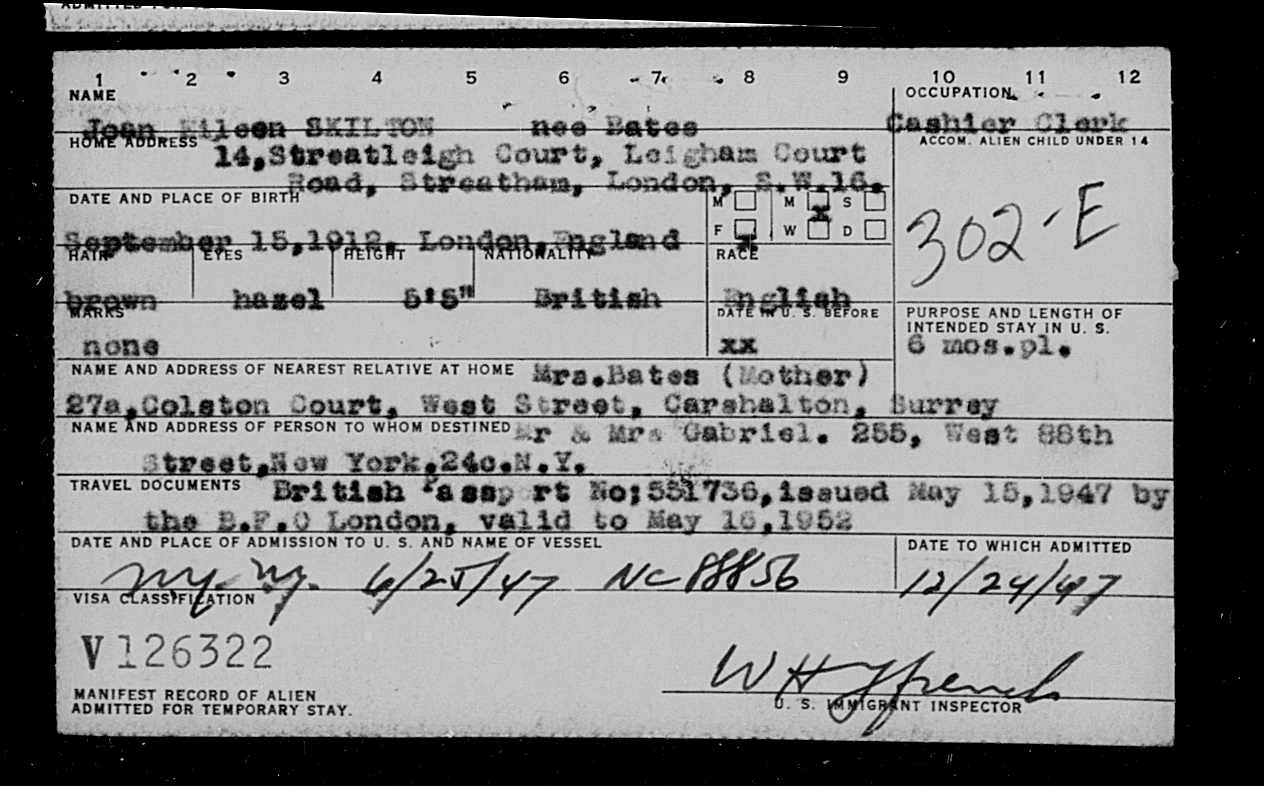 1 2 3 4 5 6 7 8 9 10 11 12
NAME OCCUPATION
Joan Eileen SKILTON nee Bates Cashier Clerk
HOME ADDRESS ACCOM. ALIEN CHILD UNDER 14
14,Streatleigh Court, Leigham Court
Road, Streatham, London, S.W.16.
DATE AND PLACE OF BIRTH M M x S
302-E
F x W D
September 15,1912, London,England
HAIR EYES HEIGHT NATIONALITY RACE
brown hazel 5'5" British English
MARKS DATE IN U. S. BEFORE PURPOSE AND LENGTH OF
INTENDED STAY IN U. S.
none xx 6 mos.pl.
NAME AND ADDRESS OF NEAREST RELATIVE AT HOME Mrs.Bates (Mother)
27a,Colston Court, West Street, Carshalton, Surrey
NAME AND ADDRESS OF PERSON TO WHOM DESTINED Mr & Mrs Gabriel. 255, West 88th
Street,New York,24c.N.Y.
TRAVEL DOCUMENTS British Passport No;531736,issued May 15,1947 by
the B.F.O London, valid to May 16,1952
DATE AND PLACE OF ADMISSION TO U. S. AND NAME OF VESSEL DATE TO WHICH ADMITTED
N.Y. N.Y. 6/25/47 NC 88856 12/24/47
VISA CLASSIFICATION
V126322
W H Ffrench
MANIFEST RECORD OF ALIEN
ADMITTED FOR TEMPORARY STAY.
U. S. IMMIGRANT INSPECTOR